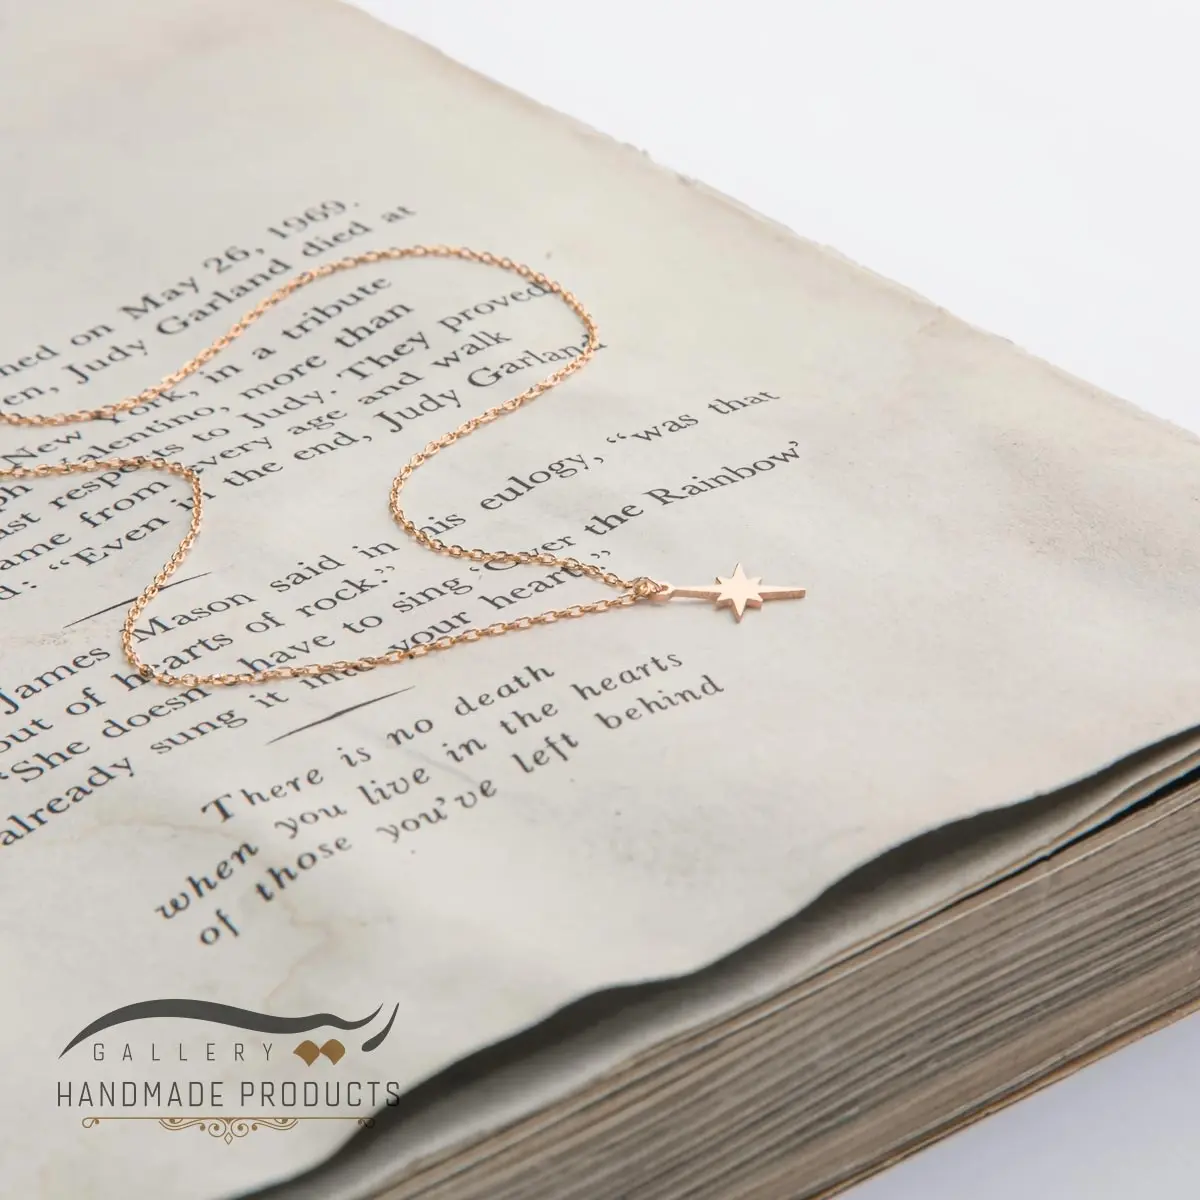 ned on May 26, 1969.
en, Judy Garland died at
New York, in a tribute
alentino, more than
ast respects to Judy. They proved
ame from every age and walk
d: “Even in the end, Judy Garland
James Mason said in his eulogy, “was that
out of hearts of rock.”
“She doesn have to sing ‘Over the Rainbow’
already sung it into your heart.”
There is no death
when you live in the hearts
of those you’ve left behind
GALLERY
HANDMADE PRODUCTS